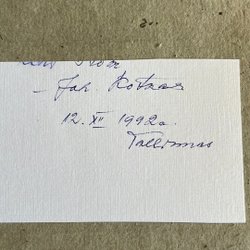 – Joh. Kotkas
12. XII 1992a.
Tallinnas